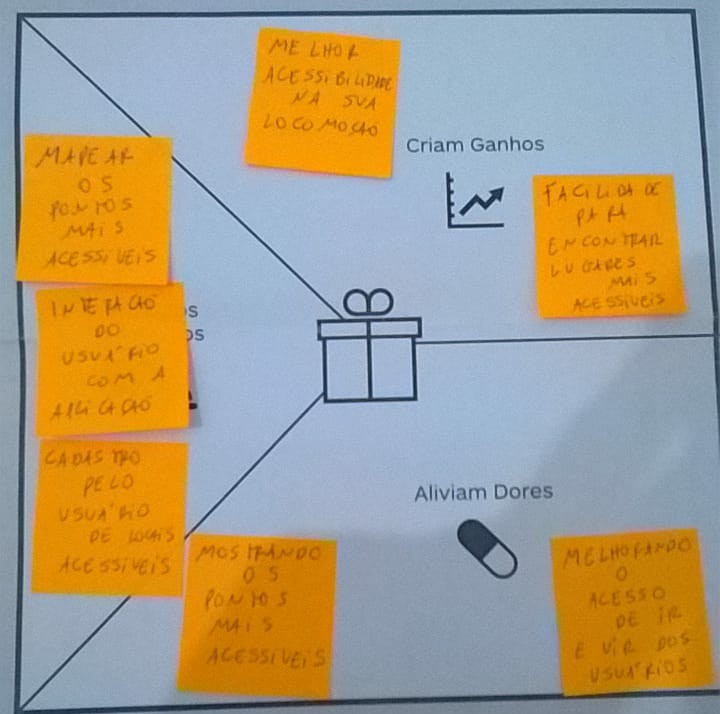 MELHOR
ACESSIBILIDADE
NA SUA
LOCOMOÇÃO
Criam Ganhos
FACILIDADE
PARA
ENCONTRAR
LUGARES
MAIS
ACESSÍVEIS
MAPEAR
OS
PONTOS
MAIS
ACESSIVEIS
INTERAÇÃO
DO
USUÁRIO
COM A
APLICAÇÃO
CADASTRO
PELO
USUÁRIO
DE LOCAIS
ACESSÍVEIS
Aliviam Dores
MOSTRANDO
OS
PONTOS
MAIS
ACESSIVEIS
MELHORANDO
O
ACESSO
DE IR
E VIR DOS
USUÁRIOS